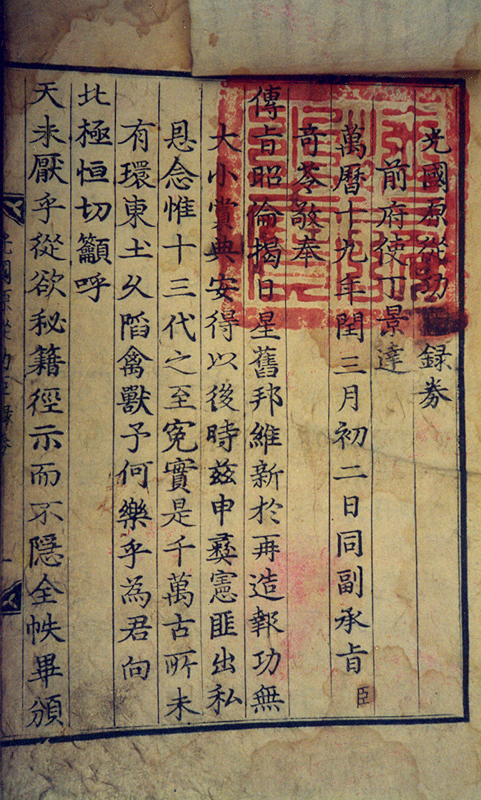 光國原從功臣錄券
前府使丁景達
萬曆十九年閏三月初二日同副承旨臣
奇苓敬奉
傳旨昭倫揭日星舊邦維新於再造報功無
大小賞典安得以後時玆申彝憲匪出私
恩念惟十三代之至冤實是千萬古所未
有環東土久陷禽獸予何樂乎為君向
北極恒切籲呼
天未厭乎從欲秘籍徑示而不隱全帙畢頒